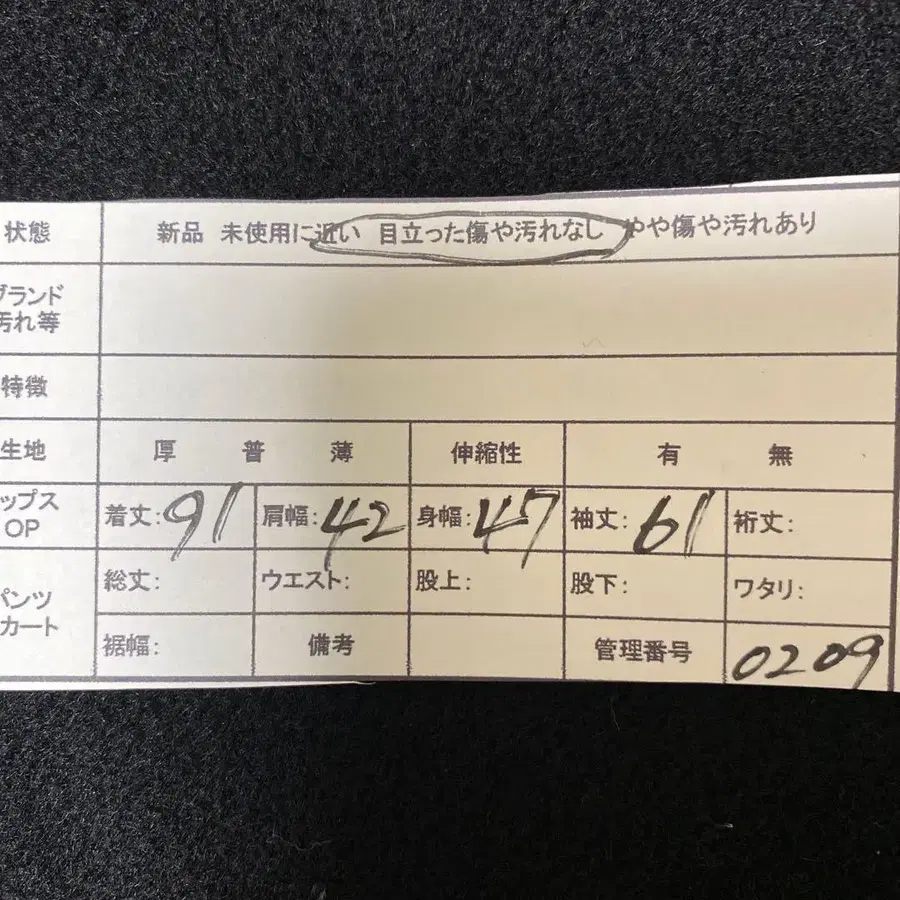 状態 新品 未使用に近い 目立った傷や汚れなし やや傷や汚れあり
ブランド
汚れ等
特徴
生地 厚 普 薄 伸縮性 有 無
ップス
OP
着丈:91 肩幅:42 身幅:47 袖丈:61 裄丈:
パンツ
カート
総丈: ウエスト: 股上: 股下: ワタリ:
裾幅: 備考 管理番号 0209